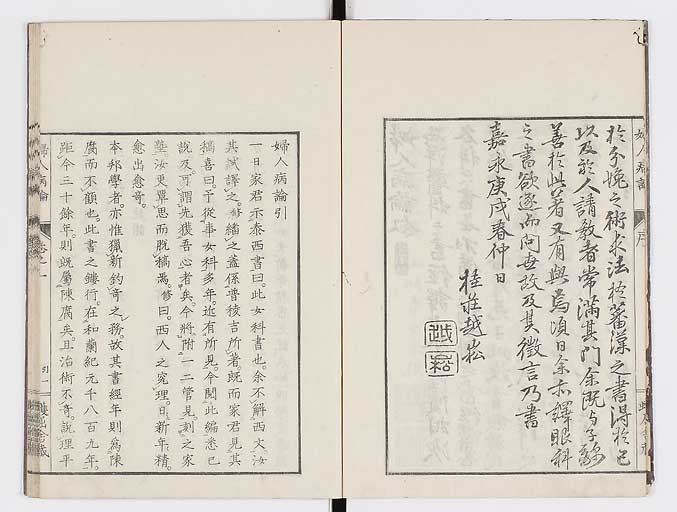 婦人病論
序
於分娩之術求法於蕃渫之書得於己
以及於人請教者常滿其門余既与子
善於此著又有與焉項日余亦繹眼科
之書欲逐而問世故及其徵言乃書
嘉永庚戌春仲日
桂荘越崧
婦人病論引
一日家君示泰西書曰此女科書也余不解西文汝
其試譯之脩繙之蓋係普稜吉所著既而家君見其
稿喜曰予從事女科多年近有所見今閲此編悉已
說及可謂先獲吾心者矣今將附一二管見刻之家
塾汝更覃思而脱稿焉脩曰西人之究理日新年精
愈出愈奇
本邦學者亦惟獵新釣奇之務故其書經年則為陳
腐而不顧也此書之鏤行在和蘭紀元千八百九年
距今三十餘年則既屬陳腐矣且治術不奇說理平
婦人病論
卷之一
引一